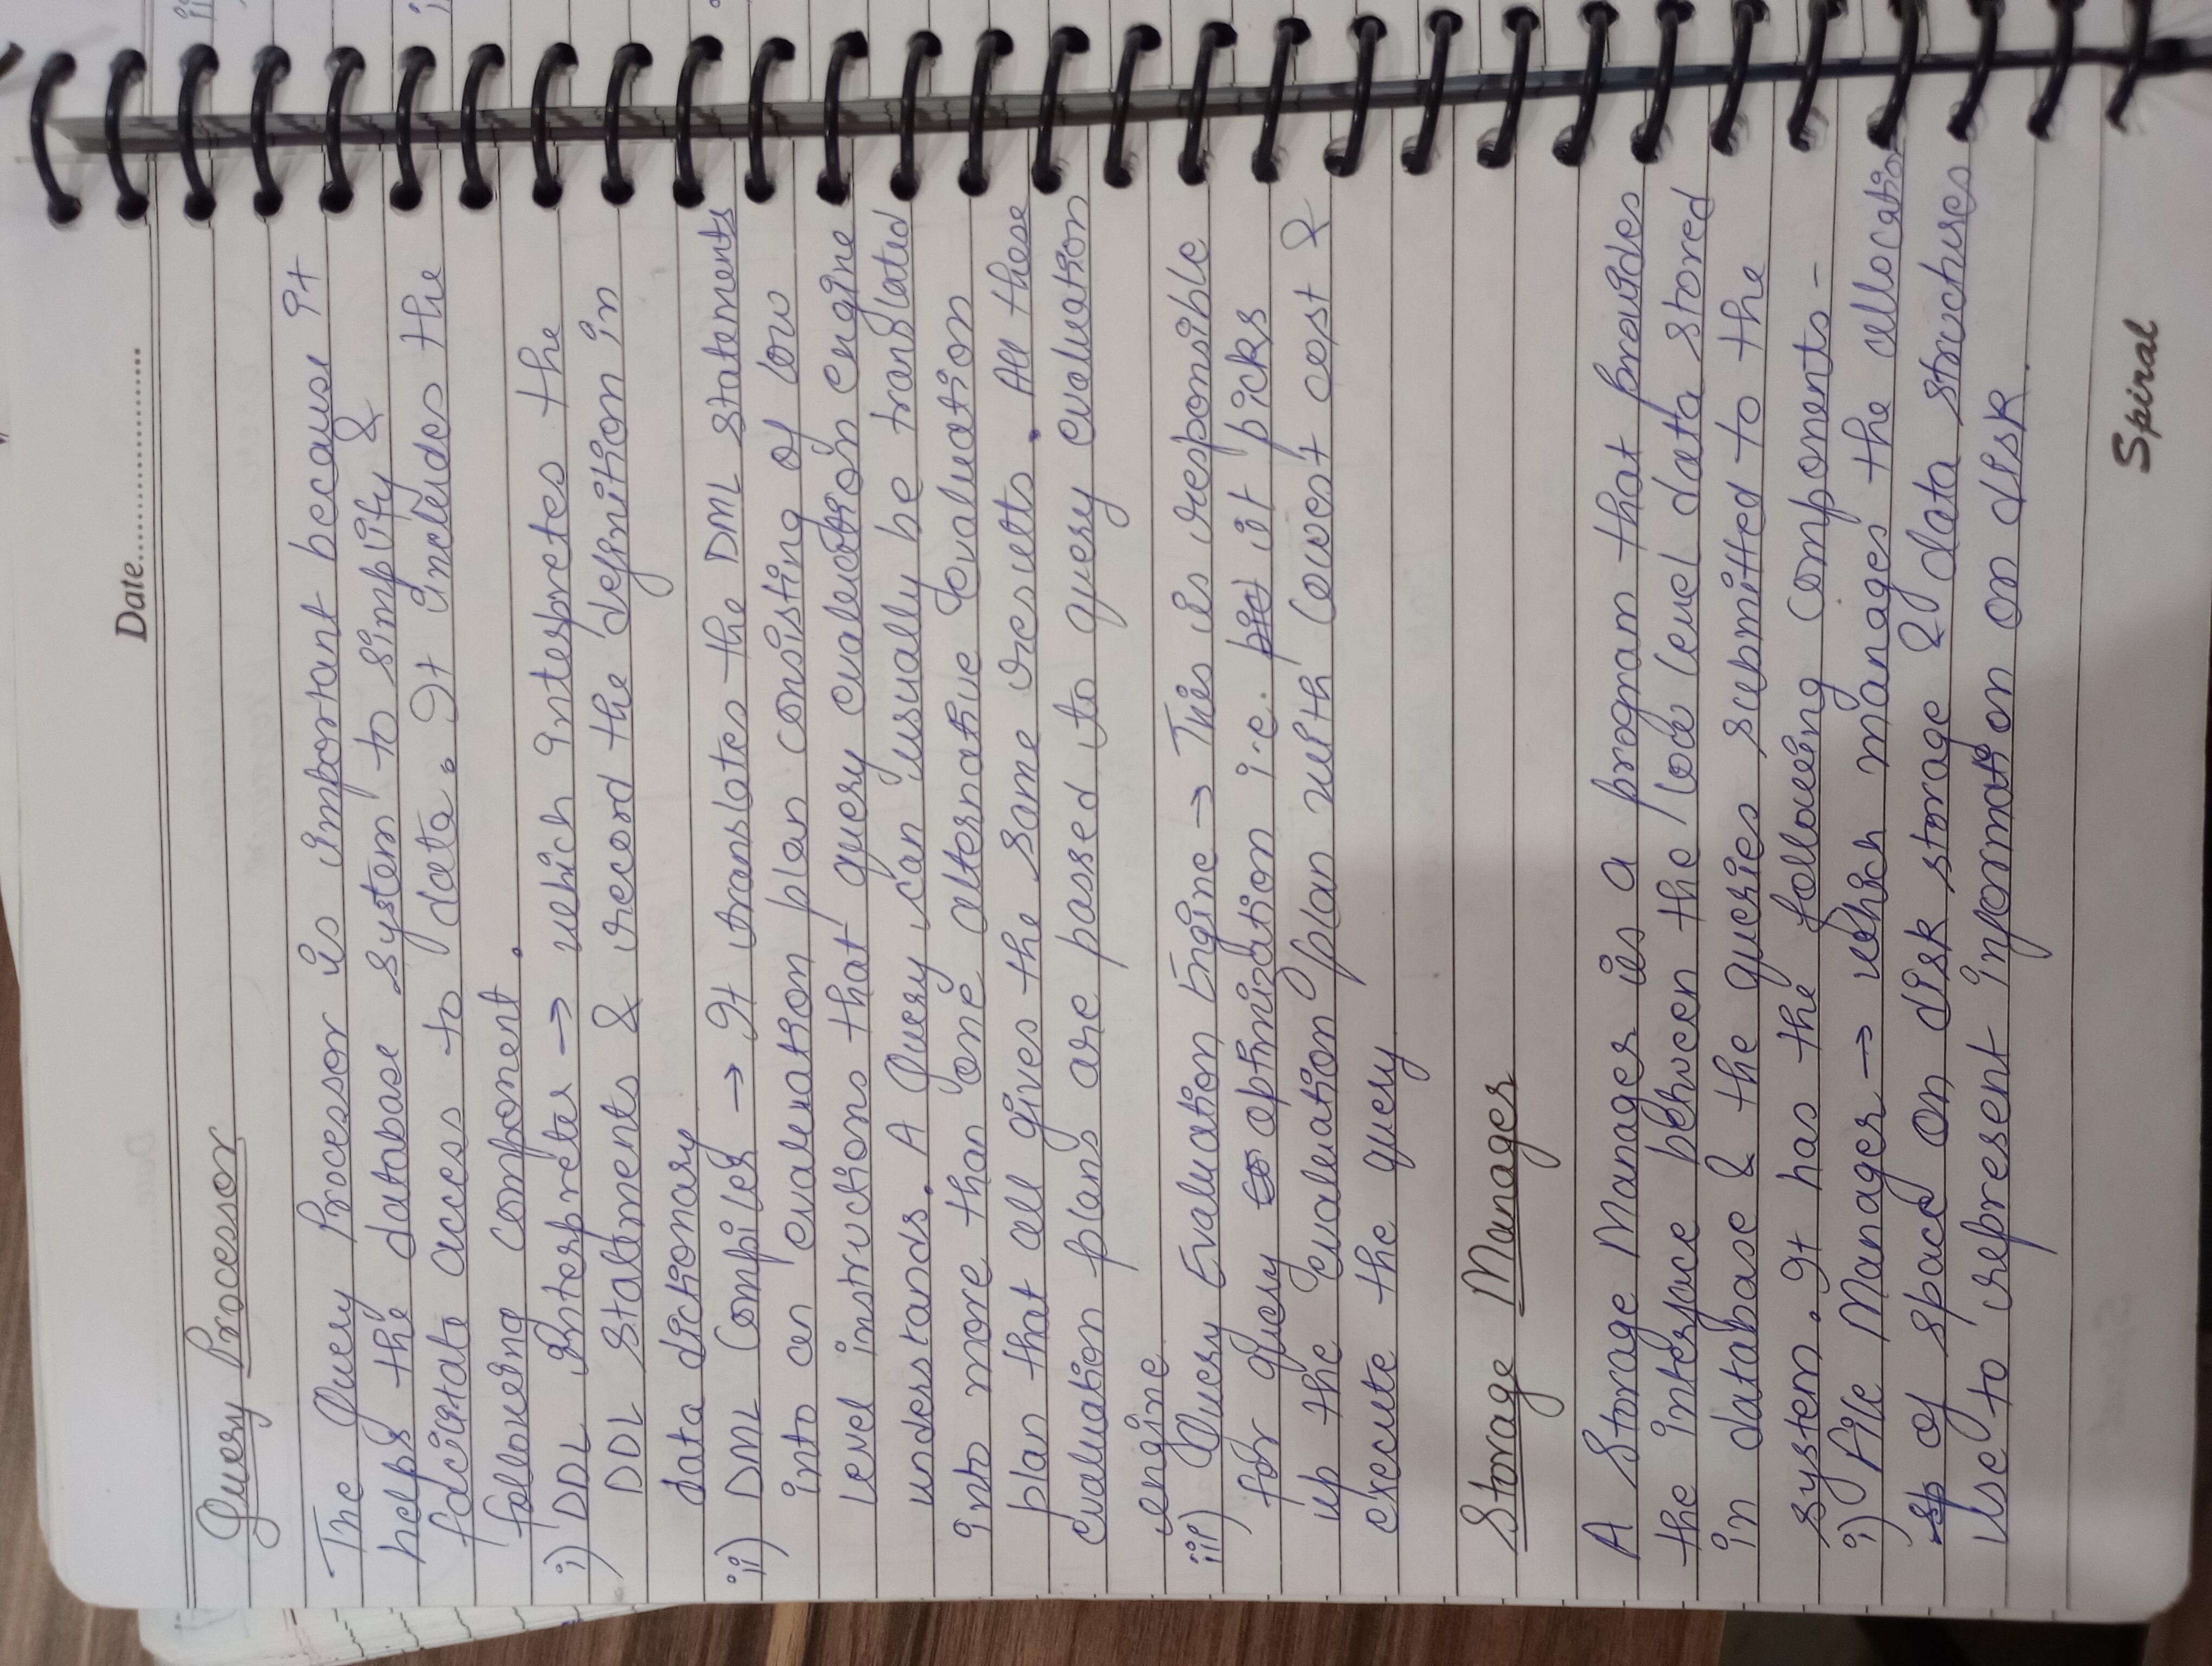 Date.....................
Query Processor
The Query Processor is important because it
helps the database system to simplify &
facilitate access to data. It includes the
following component.
i) DDL Interpreter → which interpretes the
DDL Statements & record the definition in
data dictionary
ii) DML Compiler → It translates the DML statements
into an evaluation plan consisting of low
level instructions that query evaluation engine
understands. A Query can usually be translated
into more than one alternative evaluation
plan that all gives the same results. All these
evaluation plans are passed to query evaluation
engine
iii) Query Evaluation Engine → This is responsible
for query optimization i.e. it picks
up the evaluation plan with lowest cost &
execute the query
Storage Manager
A Storage Manager is a program that provides
the interface between the low level data stored
in database & the queries submitted to the
system. It has the following components -
i) File Manager → which manages the allocation
of space on disk storage & data structures
use to represent information on disk.
Spiral